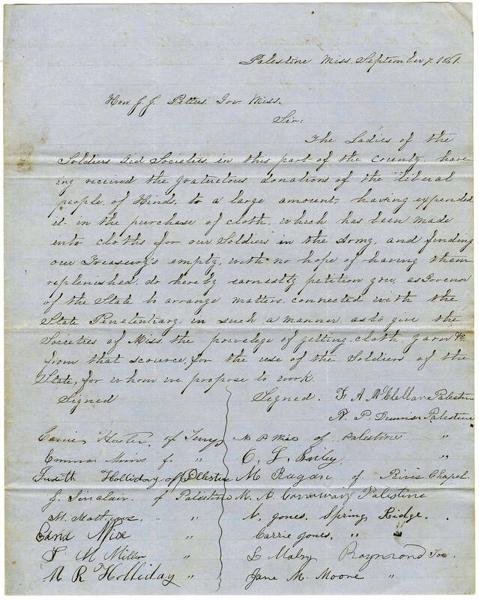 Palestine Miss. September 7. 1861.
Hon J. J. Pettus Gov Miss.
Sir.
The Ladies of the
Soldiers Aid Societies in this part of the county, hav-
ing received the gratuitous donations of the liberal
people of Hinds, to a large amount, having expended
it in the purchase of cloth, which has been made
into cloths for our Soldiers in the Army, and finding
our Treasury's empty, with no hope of having them
replenished, do hereby earnestly petition you, as Govenor
of the State to arrange matters connected with the
State Penetentiary in such a manner, as to give the
Societies of Miss the privelege of getting cloth, yarn &c
from that scource, for the use of the Soldiers of the
State, for whom we propose to work.
Signed
Signed. F. A. McClellan Palestine
N. P. Palestine
Hester, of Terry
M P Mix of Palestine "
C. L. "
Judith Holliday of Palestine
M Ragan of Chapel
J. Sinclair. of Palestine
M. A. Palestine
M. "
N. Jones. Spring Ridge.
Edna Mix "
Carrie Jones. "
F M Miller "
S Raymond
M R Holliday "
Jane M. Moore "